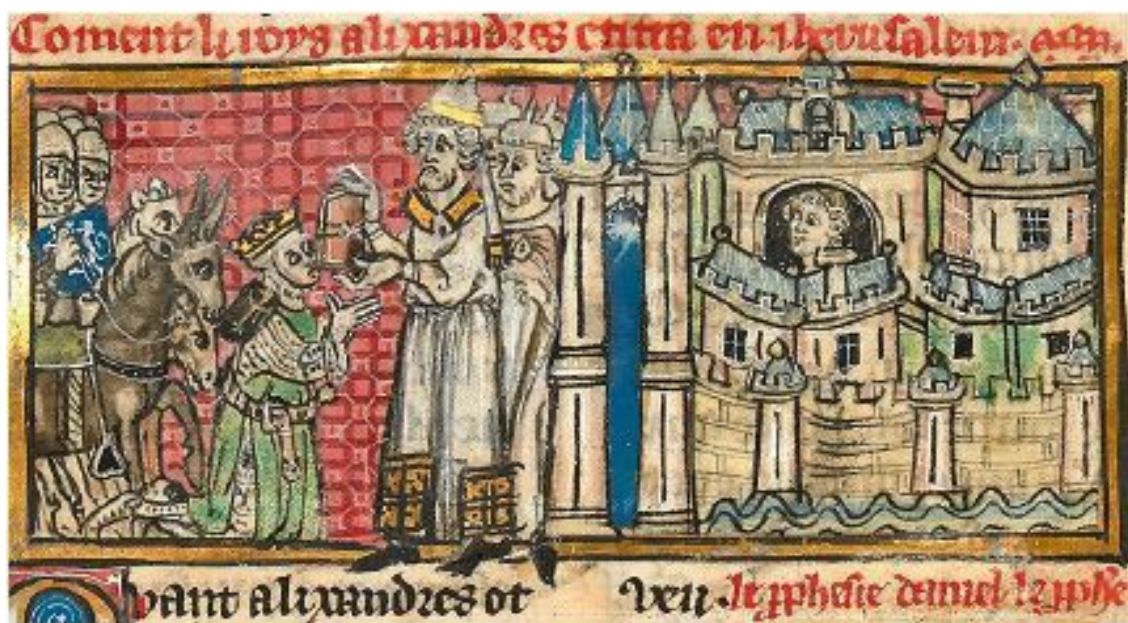 Coment li roys alixandres entra en iherusalem.
Quant alixandres ot veu le pphesie daniel le pphe